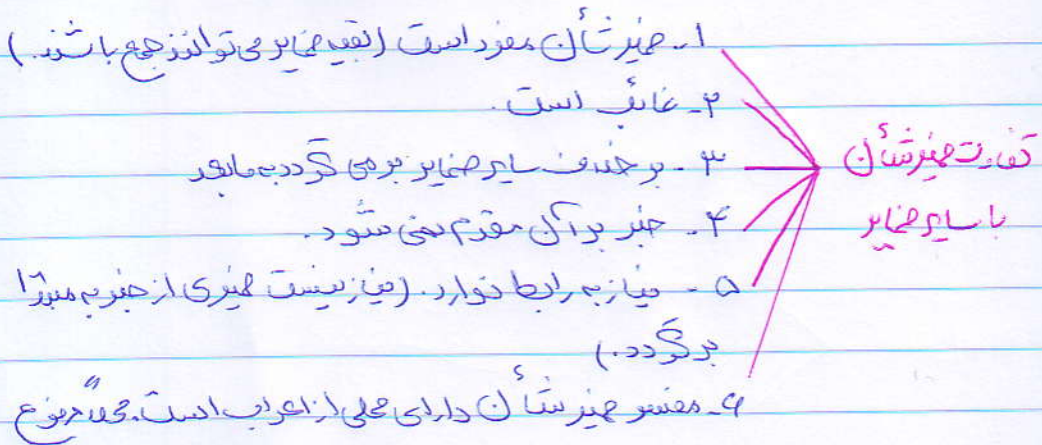 تفاوت ضمیر شأن
با سایر ضمایر
۱- ضمیر شأن مفرد است (بقیه ضمایر می توانند جمع باشند.)
۲- غائب است.
۳- بر خلاف سایر ضمایر برمی گردد به مابعد
۴- خبر بر آن مقدم نمی شود.
۵- نیاز به رابط ندارد. (نیاز نیست ضمیری از خبر به مبتدا
برگردد.)
۶- مفسر ضمیر شأن دارای محلی از اعراب است. محلاً مرفوع